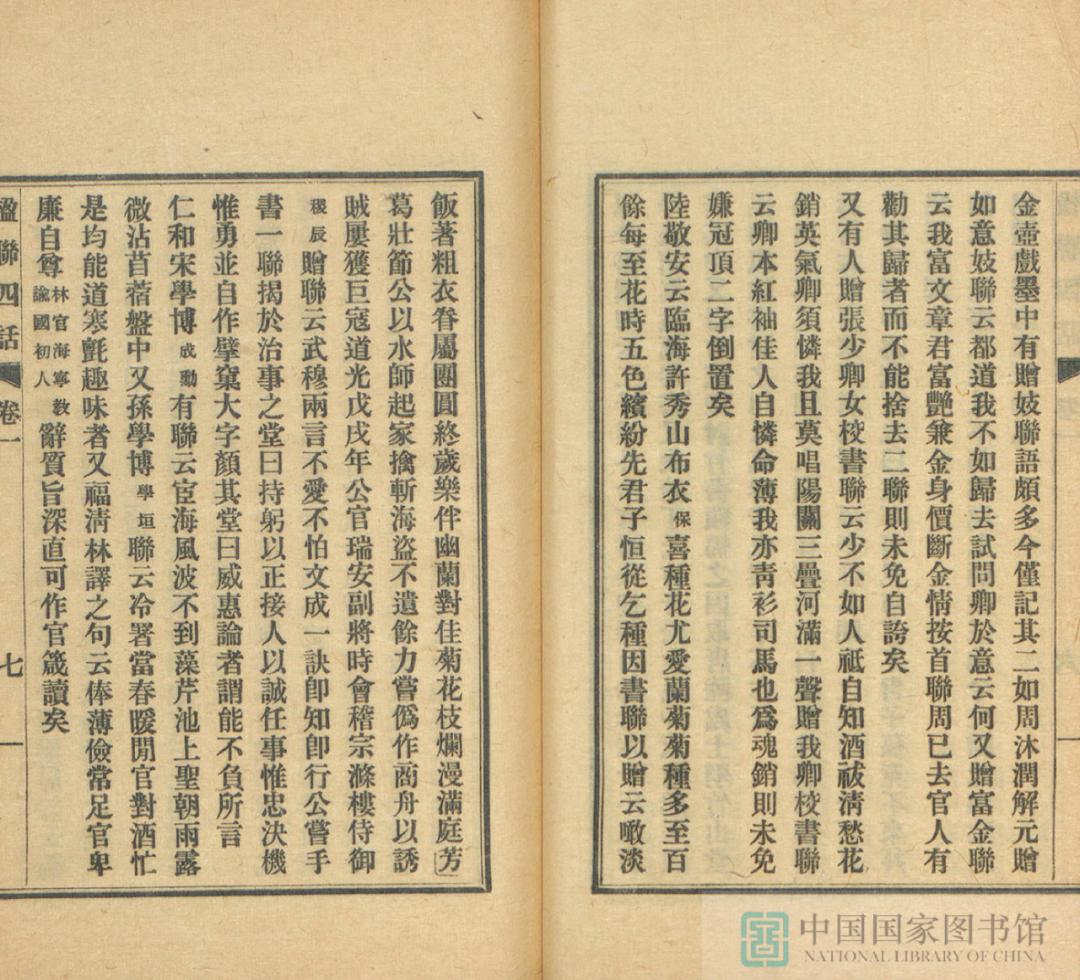 金壺戲墨中有贈妓聯語頗多今僅記其二如周沐潤解元贈
如意妓聯云都道我不如歸去試問卿於意云何又贈富金聯
云我富文章君富艷兼金身價斷金情按首聯周已去官人有
勸其歸者而不能捨去二聯則未免自誇矣
又有人贈張少卿女校書聯云少不如人祗自知酒祓淸愁花
銷英氣卿須憐我且莫唱陽關三疊河滿一聲贈我卿校書聯
云卿本紅袖佳人自憐命薄我亦靑衫司馬也爲魂銷則未免
嫌冠頂二字倒置矣
陸敬安云臨海許秀山布衣保喜種花尤愛蘭菊菊種多至百
餘每至花時五色繽紛先君子恒從乞種因書聯以贈云噉淡
飯著粗衣眷屬團圓終歲樂伴幽蘭對佳菊花枝爛漫滿庭芳
葛壯節公以水師起家擒斬海盜不遺餘力嘗僞作商舟以誘
賊屢獲巨寇道光戊戌年公官瑞安副將時會稽宗滌樓侍御
稷辰贈聯云武穆兩言不愛不怕文成一訣卽知卽行公嘗手
書一聯揭於治事之堂曰持躬以正接人以誠任事惟忠決機
惟勇並自作擘窠大字顏其堂曰威惠論者謂能不負所言
仁和宋學博成勳有聯云宦海風波不到藻芹池上聖朝雨露
微沾苜蓿盤中又孫學博學垣聯云冷署當春暖閒官對酒忙
是均能道寒氈趣味者又福淸林譯之句云俸薄儉常足官卑
廉自尊林官海寧敎諭國初人辭質旨深直可作官箴讀矣
楹聯四話 卷一 七
中国国家图书馆
NATIONAL LIBRARY OF CHINA